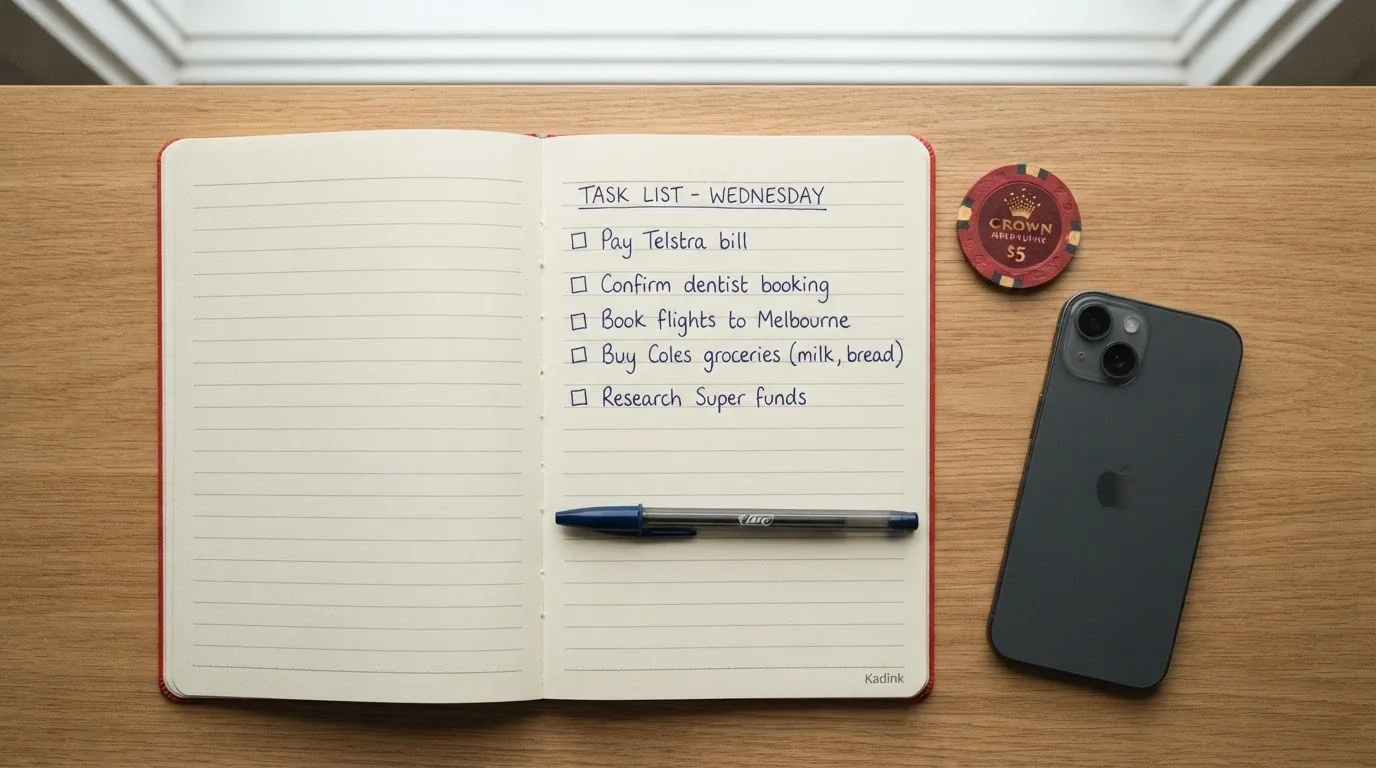 TASK LIST – WEDNESDAY
Pay Telstra bill
Confirm dentist booking
Book flights to Melbourne
Buy Coles groceries (milk, bread)
Research Super funds
Kadink
CROWN
$5